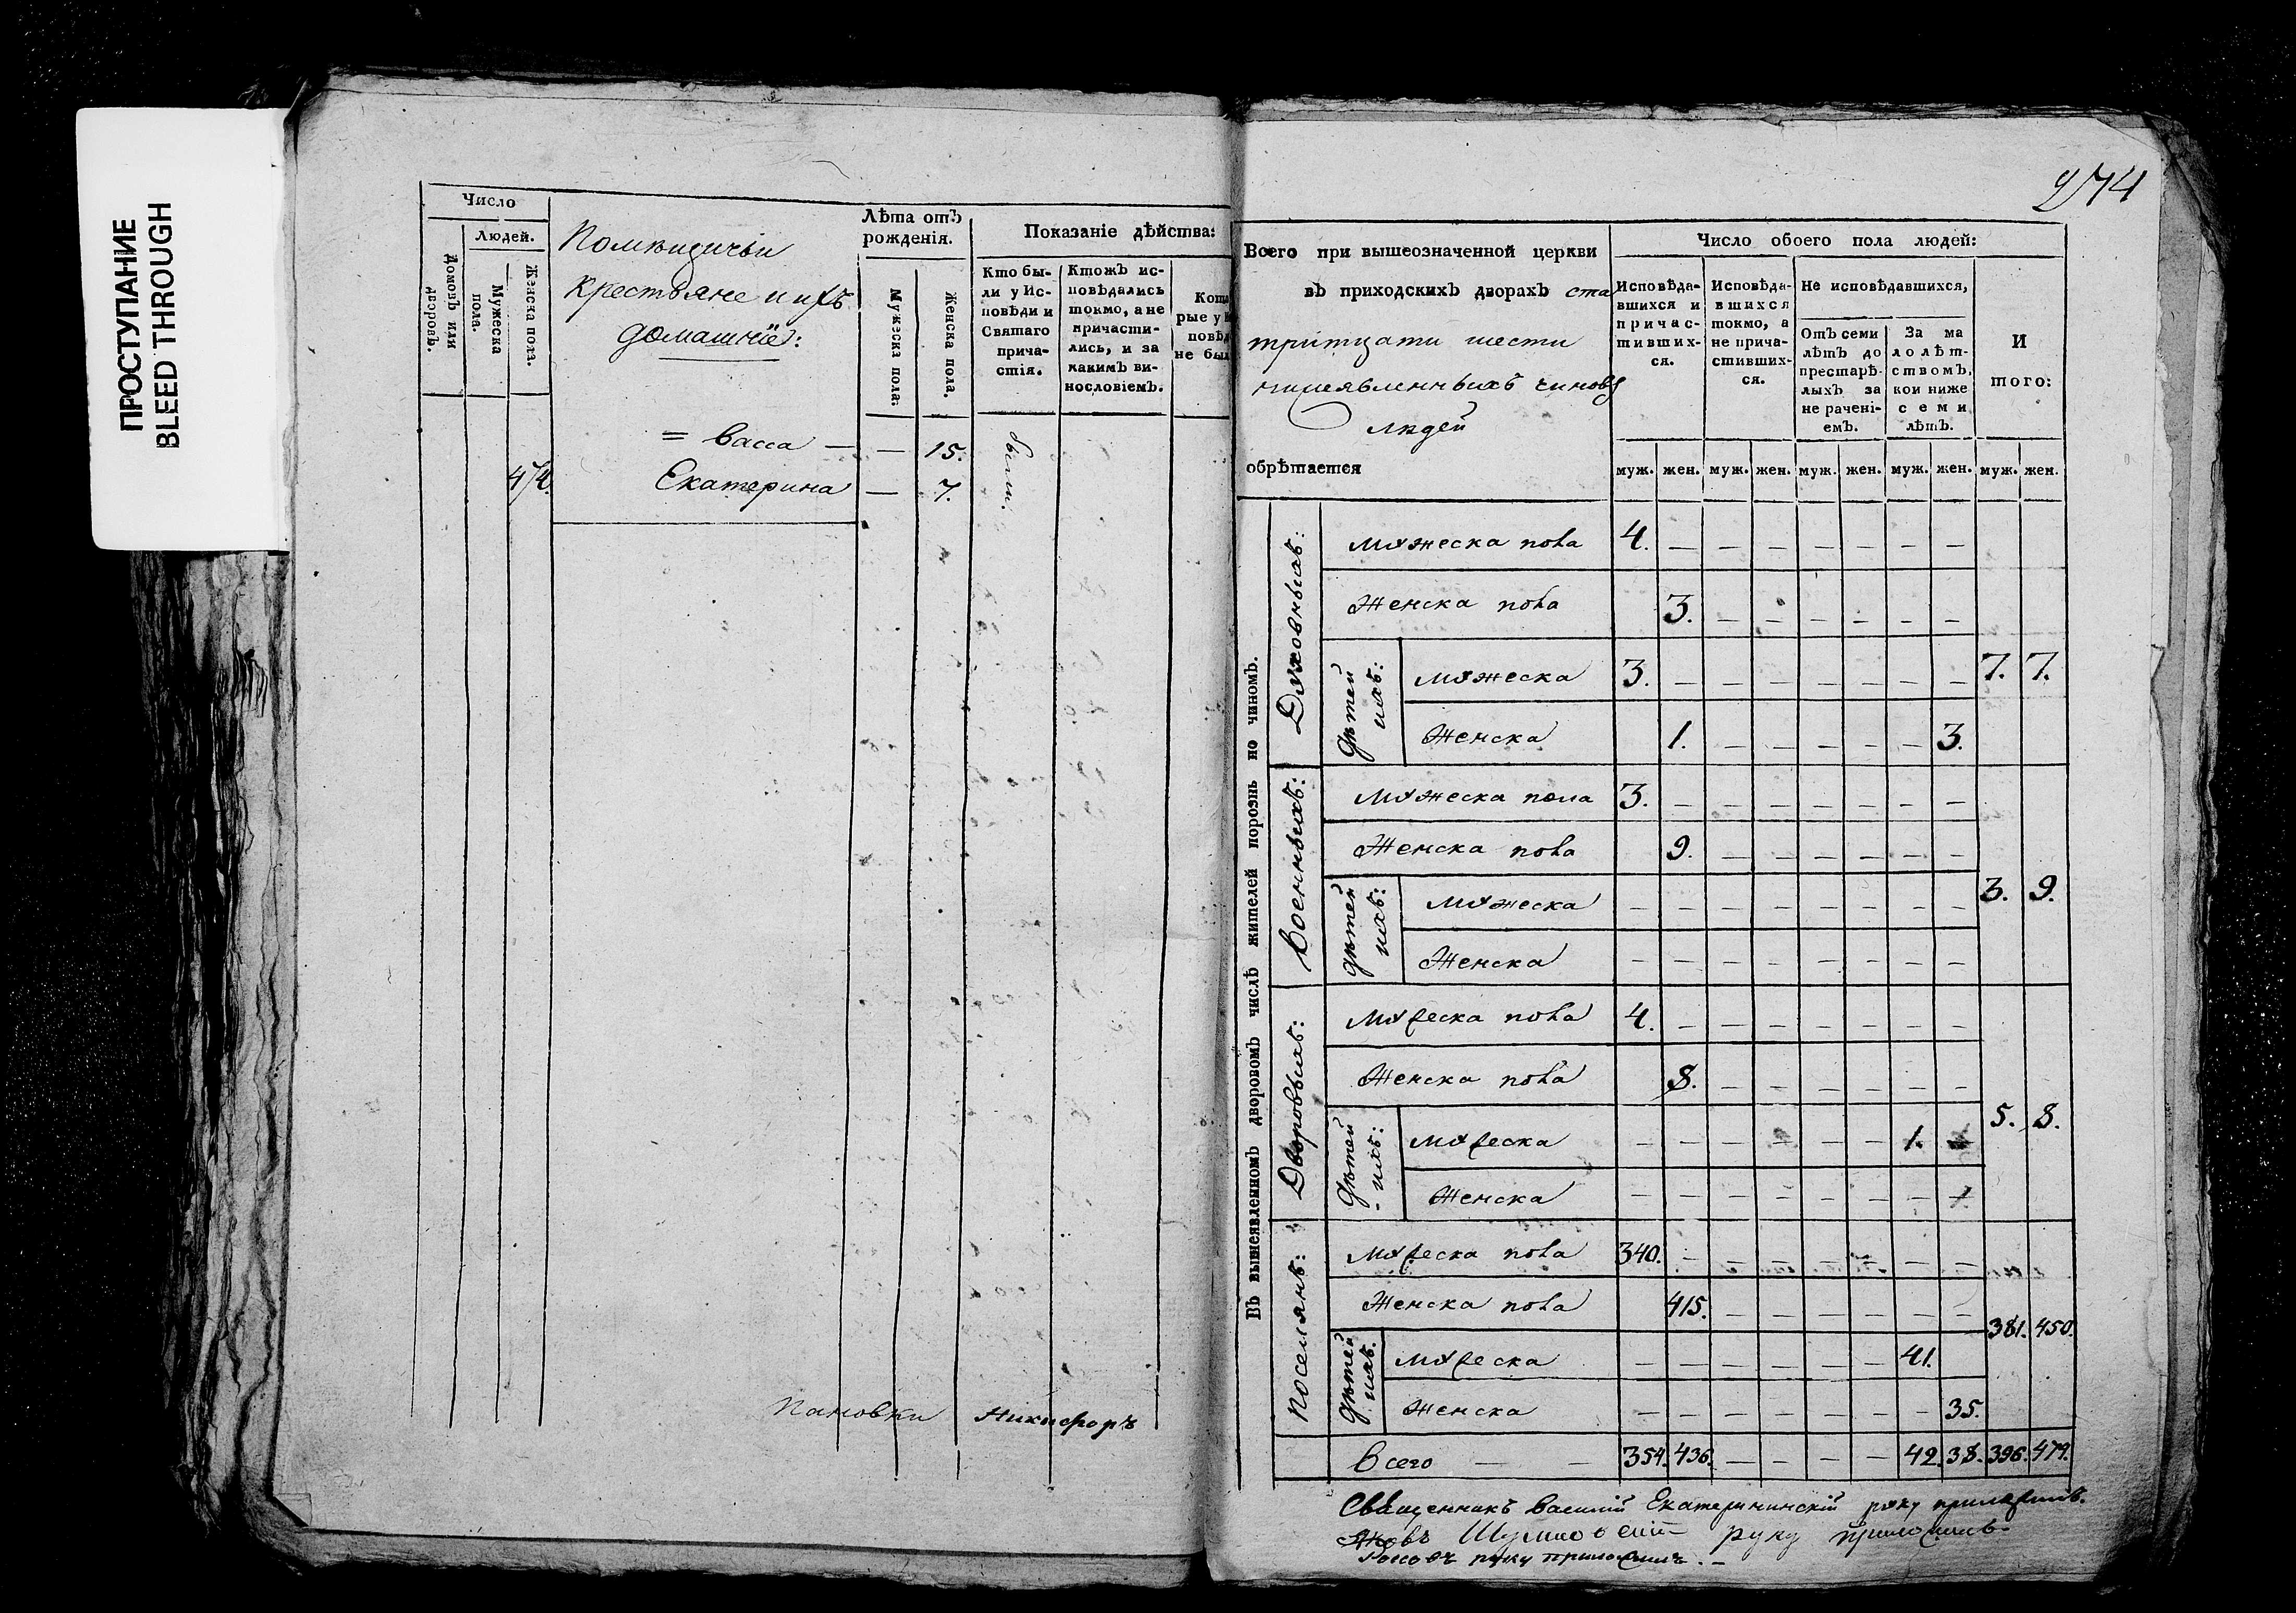 ПРОСТУПАНИЕ
BLEED THROUGH
Число
Людей.
Домовъ или дворовъ.
Мужеска пола.
Женска пола.
Помѣщичьи
крестьяне и ихъ
домашніе:
Лѣта отъ
рожденія.
Мужеска пола.
Женска пола.
Показаніе дѣйства:
Кто бы-
ли у Ис-
повѣди и
Святаго
прича-
стія.
Ктожъ ис-
повѣдались
токмо, а не
причасти-
лись, и за
какимъ ви-
нословіемъ.
Кото
рые у И
повѣд
не был
= Васса — — 15. были.
474. Екатерина — 7.
Пановки Никифоръ
274
Всего при вышеозначенной церкви
въ приходскихъ дворахъ ста
тритцати шести
нижеявленныхъ чиновъ
людей
обрѣтается
Число обоего пола людей:
Исповѣда-
вшихся и
причас-
тивших-
ся.
Исповѣда-
вшихся
токмо, а
не прича-
стивших-
ся.
Не исповѣдавшихся,
Отъ семи
лѣтъ до
престарѣ-
лыхъ за
не рачені-
емъ.
За ма
лолѣт-
ствомъ,
кои ниже
семи
лѣтъ.
И
того:
муж. жен. муж. жен. муж. жен. муж. жен. муж. жен.
Въ вышеявленномъ дворовомъ числѣ жителей порознь по чиномъ.
Духовныхъ:
Мужеска пола 4. — — — — — — —
Женска пола 3. — — — — — —
Дѣтей ихъ:
Мужеска 3. — — — — — — — 7. 7.
Женска 1. — — — — — 3.
Военныхъ:
Мужеска пола 3. — — — — — — —
Женска пола 9. — — — — — —
Дѣтей ихъ:
Мужеска — — — — — — — — 3. 9.
Женска — — — — — — — —
Дворовыхъ:
Мужеска пола 4. — — — — — — —
Женска пола 8. — — — — — —
Дѣтей ихъ:
Мужеска — — — — — — 1. — 5. 8.
Женска — — — — — — —
Поселянъ:
Мужеска пола 340. — — — — — — —
Женска пола 415. — — — — — —
381. 450.
Дѣтей ихъ:
Мужеска — — — — — — 41.
Женска — — — — — — — 35.
Всего — — 354. 436. — — — — 42. 38. 396. 474.
Священникъ Василій Екатерининскій руку приложилъ.
руку приложилъ.
руку приложилъ. —